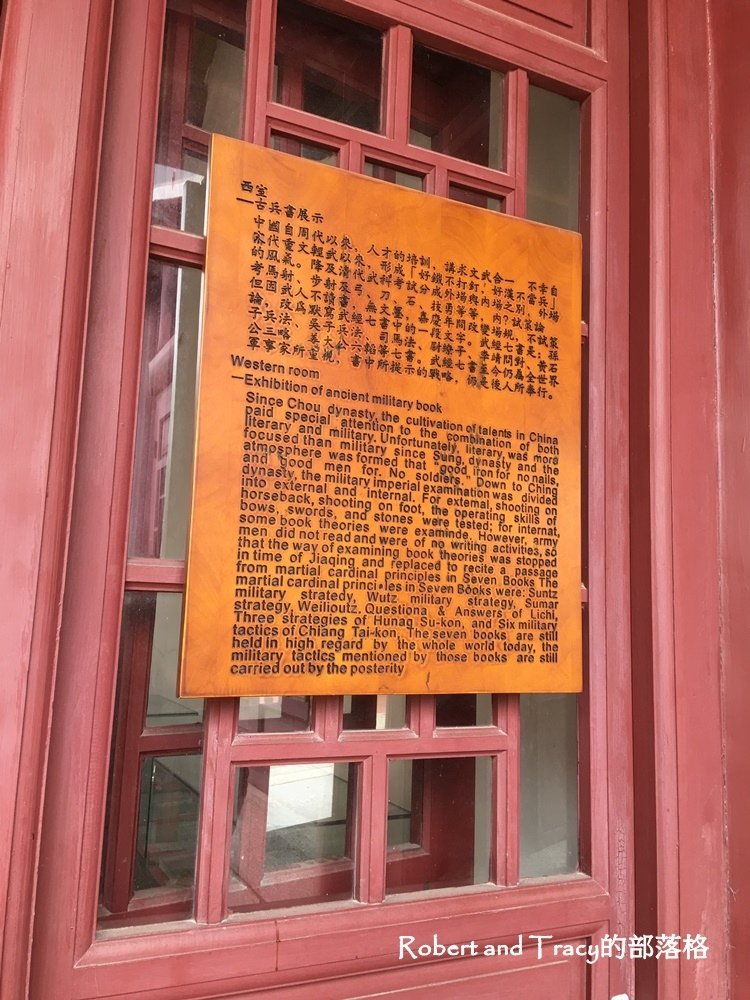 西室
—古兵書展示
中國自周代以來，人才的培訓，講求文武合一　不幸自
宋代重文輕武以來，形成「好鐵不打釘！好漢不當兵」
的風氣。降及清代武科考試分成外場與內場之別，外場
考馬射、步射及弓、刀、石、技勇等，內?試策論
但因武人不讀書，無文墨，嘉慶年間改變場規，不試策
論，改為默寫武經七書中的一段文字。武經七書是：孫
子兵法、吳子兵法、司馬法、尉繚子、李靖問對、黃石
公三略、姜太公六韜等七書。武經七書至今仍為全世界
軍事家所重視，書中所提示的戰略，仍是後人所奉行。
Western room
—Exhibition of ancient military book
Since Chou dynasty, the cultivation of talents in China
paid special attention to the combination of both
literary and military. Unfortunately, literary, was more
focused than military since Sung, dynasty and the
atmosphere was formed that "good iron for no nails,
and good men for. No soldiers." Down to Ching
dynasty, the military imperial examination was divided
into external and internal. For extemal, shooting on
horseback, shooting on foot, the operating skills of
bows, swords, and stones were tested; for internat,
some book theories were examinde. However, army
men did not read and were of no writing activities, so
that the way of examining book theories was stopped
in time of Jiaqing and replaced to recite a passage
from martial cardinal principles in Seven Books The
martial cardinal principles in Seven Books were: Suntz
military stratedy, Wutz military strategy, Sumar
strategy, Weilioutz. Questiona & Answers of Lichi,
Three strategies of Hunag Su-kon, and Six military
tactics of Chiang Tai-kon, The seven books are still
held in high regard by the whole world today, the
military tactics mentioned by those books are still
carried out by the posterity
Robert and Tracy的部落格